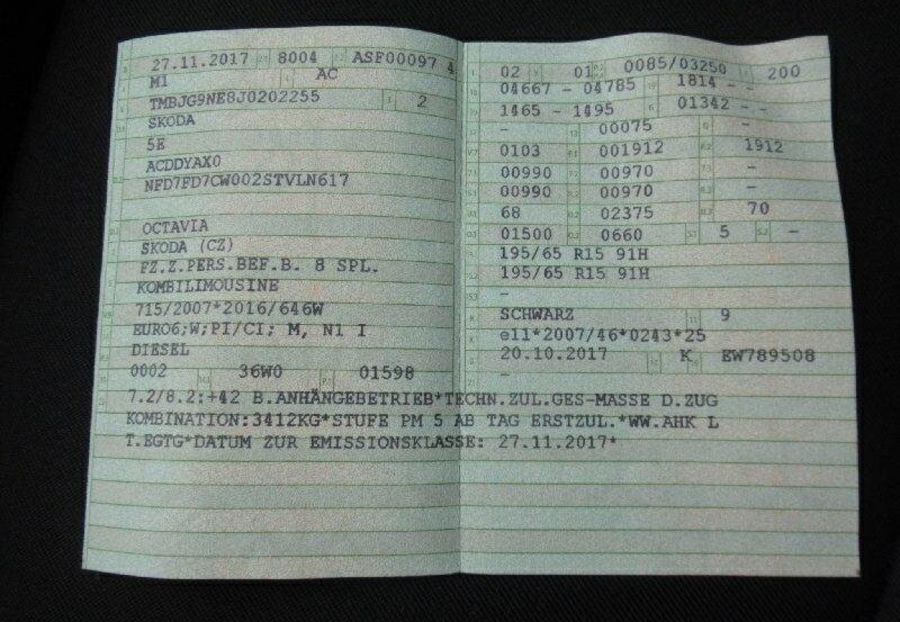 27.11.2017 8004 ASF00097 4
M1 AC
TMBJG9NE8J0202255 2
SKODA
5E
ACDDYAX0
NFD7FD7CW002STVLN617
OCTAVIA
SKODA (CZ)
FZ.Z.PERS.BEF.B. 8 SPL.
KOMBILIMOUSINE
715/2007*2016/646W
EURO6;W;PI/CI; M, N1 I
DIESEL
0002 36W0 01598
02 01 0085/03250 200
04667 - 04785 1814 - -
1465 - 1495 01342 - -
- 00075 -
0103 001912 1912
00990 00970 -
00990 00970 -
68 02375 70
01500 0660 5 -
195/65 R15 91H
195/65 R15 91H
-
SCHWARZ 9
e11*2007/46*0243*25
20.10.2017 K EW789508
-
7.2/8.2:+42 B.ANHÄNGEBETRIEB*TECHN.ZUL.GES-MASSE D.ZUG
KOMBINATION:3412KG*STUFE PM 5 AB TAG ERSTZUL.*WW.AHK L
T.EGTG*DATUM ZUR EMISSIONSKLASSE: 27.11.2017*